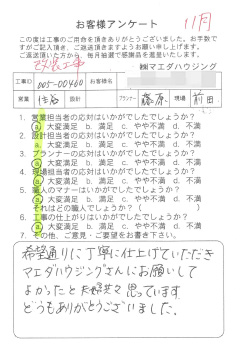 お客様アンケート
11月
この度は工事のご用命を頂きありがとうございました。お手数で
すがご記入頂き、ご返送頂きますようお願い申し上げます。
ご返送頂いた方から、毎月抽選で感謝品を進呈いたします。
改装工事
㈱マエダハウジング
工事ID 005-00460 お客様名
営業 住谷 設計 プランナー 藤原 現場 前田
1. 営業担当者の応対はいかがでしたでしょうか?
a. 大変満足 b. 満足 c. やや不満 d. 不満
2. 設計担当者の応対はいかがでしたでしょうか?
a. 大変満足 b. 満足 c. やや不満 d. 不満
3. プランナーの応対はいかがでしたでしょうか?
a. 大変満足 b. 満足 c. やや不満 d. 不満
4. 現場担当者の応対はいかがでしたでしょうか?
a. 大変満足 b. 満足 c. やや不満 d. 不満
5. 職人のマナーはいかがでしたでしょうか?
a. 大変満足 b. 満足 c. やや不満 d. 不満
それはどの職人でしょうか?( )
6. 工事の仕上がりはいかがでしたでしょうか?
a. 大変満足 b. 満足 c. やや不満 d. 不満
7. その他、ご意見・ご要望をお書き下さい。
希望通りに丁寧に仕上げていただき
マエダハウジングさんにお願いして
よかったと 思っています
どうもありがとうございました。